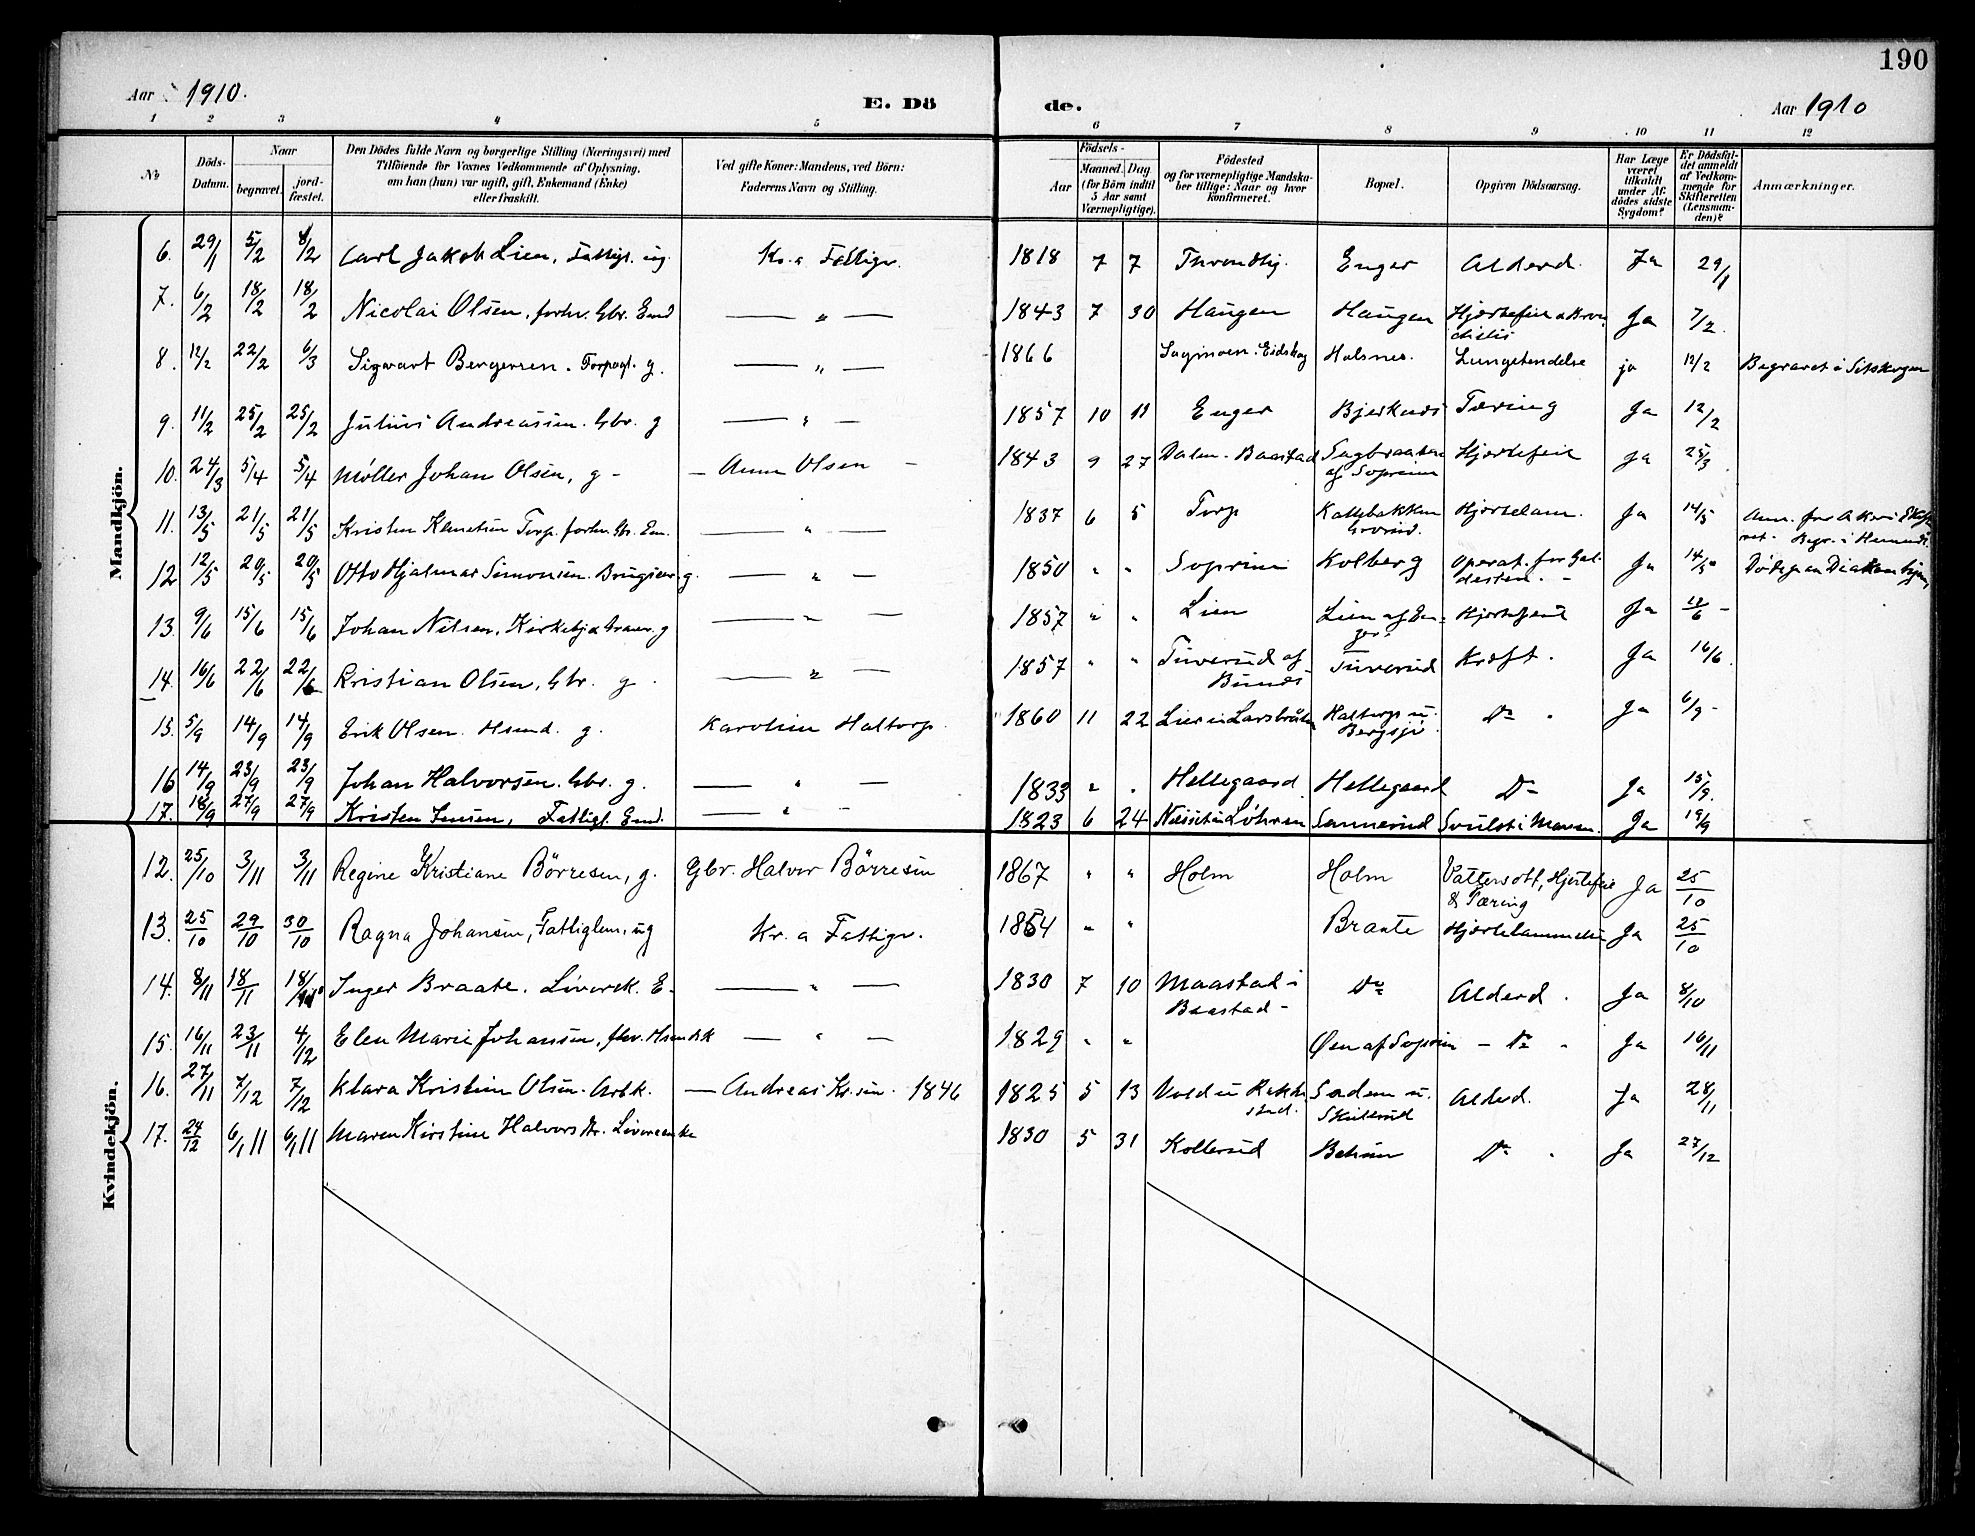 190
Aar 1910.
E. Dö
de.
Aar 1910
1 2 3 4 5 6 7 8 9 10 11 12
No
Döds-Datum.
Naar
begravet.
jord-fæstet.
Den Dödes fulde Navn og borgerlige Stilling (Næringsvei) med
Tilföiende for Voxnes Vedkommende af Oplysning,
om han (hun) var ugift, gift, Enkemand (Enke)
eller fraskilt.
Ved gifte Koner: Mandens, ved Börn:
Faderens Navn og Stilling.
Födsels-
Aar
Maaned. Dag
(for Börn indtil
5 Aar samt
Værnepligtige).
Födested
og for værnepligtige Mandska-
ber tillige: Naar og hvor
konfirmeret.
Bopæl.
Opgiven Dödsaarsag.
Har Læge
været
tilkaldt
under Af-
dödes sidste
Sygdom?
Er Dödsfal-
det anmeldt
af Vedkom-
mende for
Skifteretten
(Lensman-
den)?
Anmærkninger.
Mandkjön.
6. 29/1 5/2 8/2 Carl Jakob Lien, Fattigl. ug. Kr.a Fattigv. 1818 7 7 Throndhj. Enger Alderd. Ja 29/1
7. 6/2 18/2 18/2 Nicolai Olsen, forhv. Gbr. Emd — " — 1843 7 30 Haugen Haugen Hjertefeil & Bron- Ja 7/2
chitis
8. 12/2 22/2 6/3 Sigvart Bergersen. Forpagt. g. — " — 1866 Sagmoen. Eidskog Halsnes. Lungebetendelse ja 12/2 Begravet i Setskogen
9. 11/2 25/2 25/2 Julius Andreassen. Gbr. g — " — 1857 10 11 Enger Bjerknes Tæring Ja 12/2
10. 24/3 5/4 5/4 Møller Johan Olsen, g - — Anne Olsen - 1843 9 27 Dalen. Baastad Sagbraaten Hjertefeil ja 25/3
af Soprim
11. 13/5 21/5 21/5 Kristen Klemetsen Torp. forhv. Gbr. Em. — " — 1837 6 5 Torp Kattebakken Hjertelam. Ja 14/5 Anm. for Aker
12 12/5 20/5 20/5 Otto Hjalmar Simonsen. Brugseier. g. — " — 1850 " " Soprim Kolberg Operat. for Gal- Ja 14/5 Døde paa Diakonhjem,
desten. -
13. 9/6 15/6 15/6 Johan Nilsen, Kirkebjø. graver. g — " — 1857 " " Lien Lien af En- Hjertefeil Ja 12/6 -
ger
14. 16/6 22/6 22/6 Kristian Olsen, Gbr. g. — " — 1857 " " Tuverud af Tuverud Kræft. Ja 16/6.
Bunes
15. 5/9 14/9 14/9 Erik Olsen. Hsmd. g. Karoline Haltorp. 1860 11 22 Lier i Haltorp u. Do. Ja 6/9 -
Bergsjø
16 14/9 23/9 23/9 Johan Halvorsen. Gbr. g. — " — 1833 " . Hellegaard Hellegaard Do Ja 15/9.
17. 18/9 27/9 27/9 Kristen Jensen, Fattigl. Emd. — " - 1823 6 24 Løhren Sannerud Svulst i Maven. Ja 19/9
Kvindekjön.
12. 25/10 3/11 3/11 Regine Kristiane Börresen, g. Gbr. Halvor Börresen 1867 " " Holm Holm Vattersott, Hjertefeil Ja 25/10
& Tæring
13. 25/10 29/10 30/10 Ragna Johansen, Fattiglem, ug Kr. a Fattigv. 1864 " " Braate Hjertelammelse Ja 25/10
14. 8/11 18/11 18/11 Inger Braate. Livørek. E. — " — 1830 7 10 Maastad i Do Alderd. Ja 8/10
Baastad -
15. 16/11 23/11 4/12 Elen Marie Johansen, fhv. Hsmdsk — " — 1829 " " Øen af Soprim — Do " Ja 16/11
16. 27/11 7/12 7/12 Klara Kristine Olsen. Arbk. — Andreas Kr.sen. 1846 1825 5 13 Vold u Rakke- Sodem u. Alderd. Ja 28/11
stad. Skilerud
17. 24/12 6/1 11 6/1 11 Maren Kirstine Halvorsdtr. Livøreenke 1830 5 31 Kollerud Behim Do " Ja 27/12